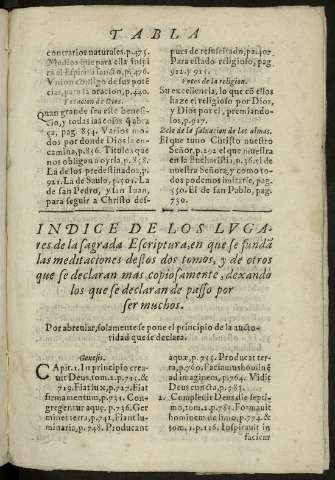 TABLA
contrarios naturales. p.475.
Medios que para ella inspi
ra el Espiritu sancto, p.476.
Vnion consigo de sus potē
cias, para la oracion, p.440.
Vocacion de Dios.
Quan grande sea este benefi-
cio, y todas las cosas q̄ abra
ça, pag. 854. Varios mo-
dos por donde Dios la en-
camina, p.856. Titulos que
nos obligan a oyrla, p.858.
La de los predestinados, p.
921. La de Saulo, p.501. La
de san Pedro, y san Iuan,
para seguir a Christo des-
pues de resuscitado, p.402.
Para estado religioso, pag.
922. y 925.
Votos de la religion.
Su excellencia, lo que cō ellos
haze el religioso por Dios,
y Dios por el, premiando-
los, p.927.
Zelo de la saluacion de las almas.
El que tuuo Christo nuestro
Señor, p.291. el que muestra
en la Eucharistia, p.36. el de
nuestra Señora, y como to-
dos podemos imitarle, pag.
550. El de san Pablo, pag.
730.
INDICE DE LOS LVGA-
res de la sagrada Escriptura, en que se fundā
las meditaciones destos dos tomos, y de otros
que se declaran mas copiosamente, dexando
los que se declaran de passo por
ser muchos.
Por abreuiar, solamente se pone el principio de la aucto-
ridad que se declara.
Genesis.
Capit. 1. In principio crea-
uit Deus, tom. 2. p.715. &
719. Fiat lux, p.747. Fiat
firmamentum, p.731. Con-
gregentur aquę, p.736. Ger
minet terra, p.741. Fiant lu-
minaria, p.748. Producant
aquæ, p.755. Producat ter-
ra, p.760. Faciamus homin ē
ad imaginem, p.764. Vidit
Deus cuncta, p.783.
2. Compleuit Deus die septi-
mo, tom. 2. p.785. Formauit
hominem de limo, p.764. &
tom. 2. p.126. Inspirauit in
faciem